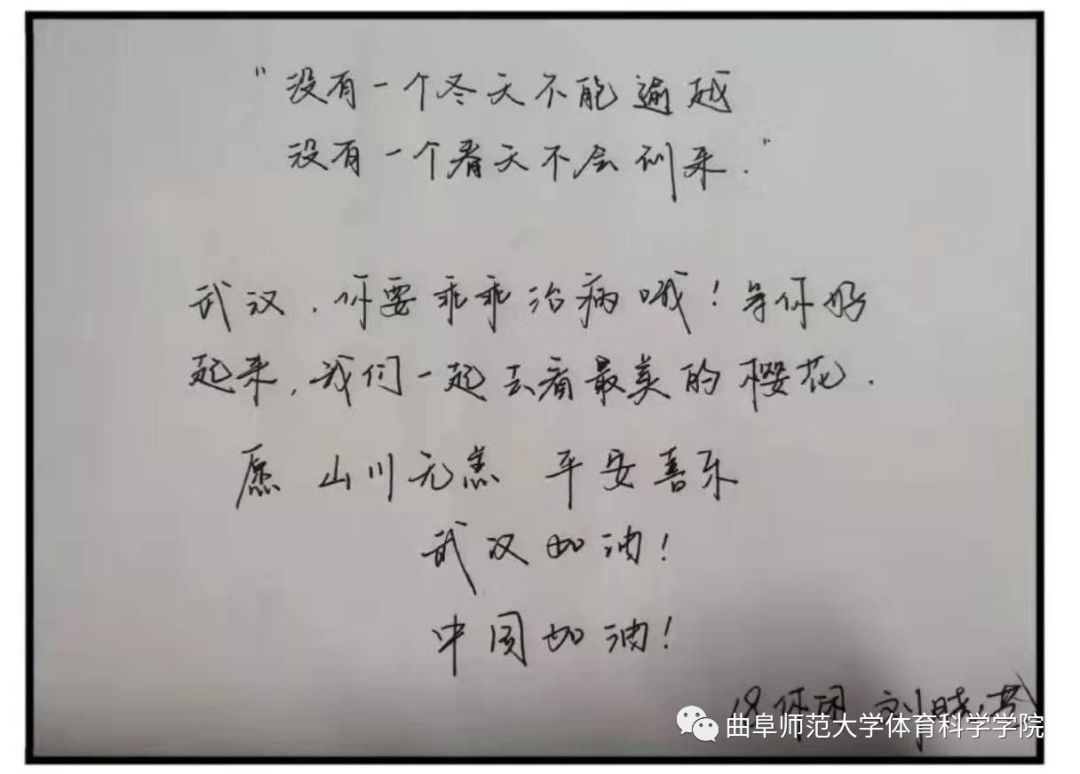 “没有一个冬天不能逾越
没有一个春天不会到来.”
武汉,你要乖乖治病哦!等你好
起来,我们一起去看最美的樱花.
愿 山川无恙 平安喜乐
武汉加油!
中国加油!
18休闲 刘晓
曲阜师范大学体育科学学院